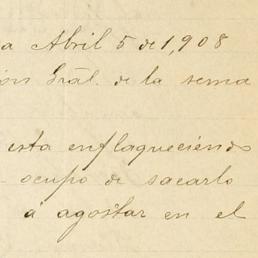 a Abril 5 de 1,908
ión Gral. de la sema
esta enflaqueciendo
ocupo de sacarlo
á agostar en el